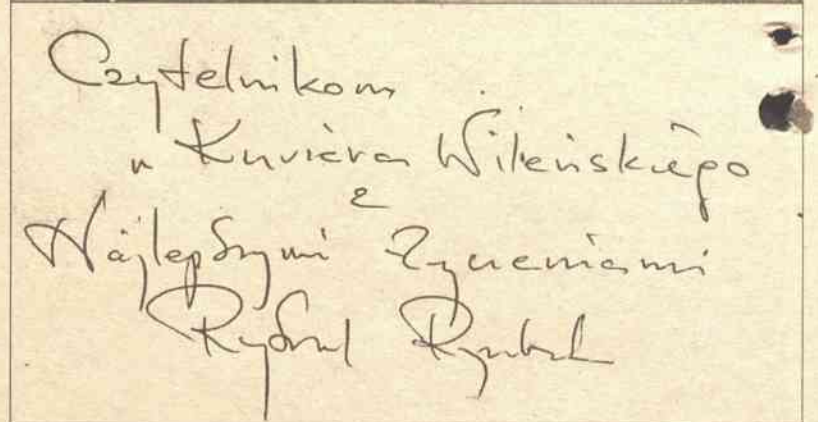 Czytelnikom
"Kuriera Wileńskiego
z
Najlepszymi życzeniami
Ryszard